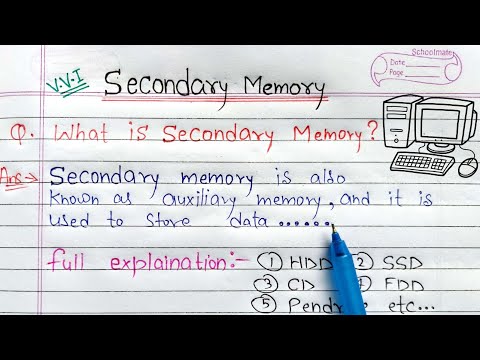 Schoolmate
Date
Page
V.V.I Secondary Memory
Q. What is Secondary Memory?
Ans→ Secondary memory is also
known as auxiliary memory, and it is
used to store data .......
full explaination:- ① HDD ② SSD
③ CD ④ FDD
⑤ Pendrive etc...